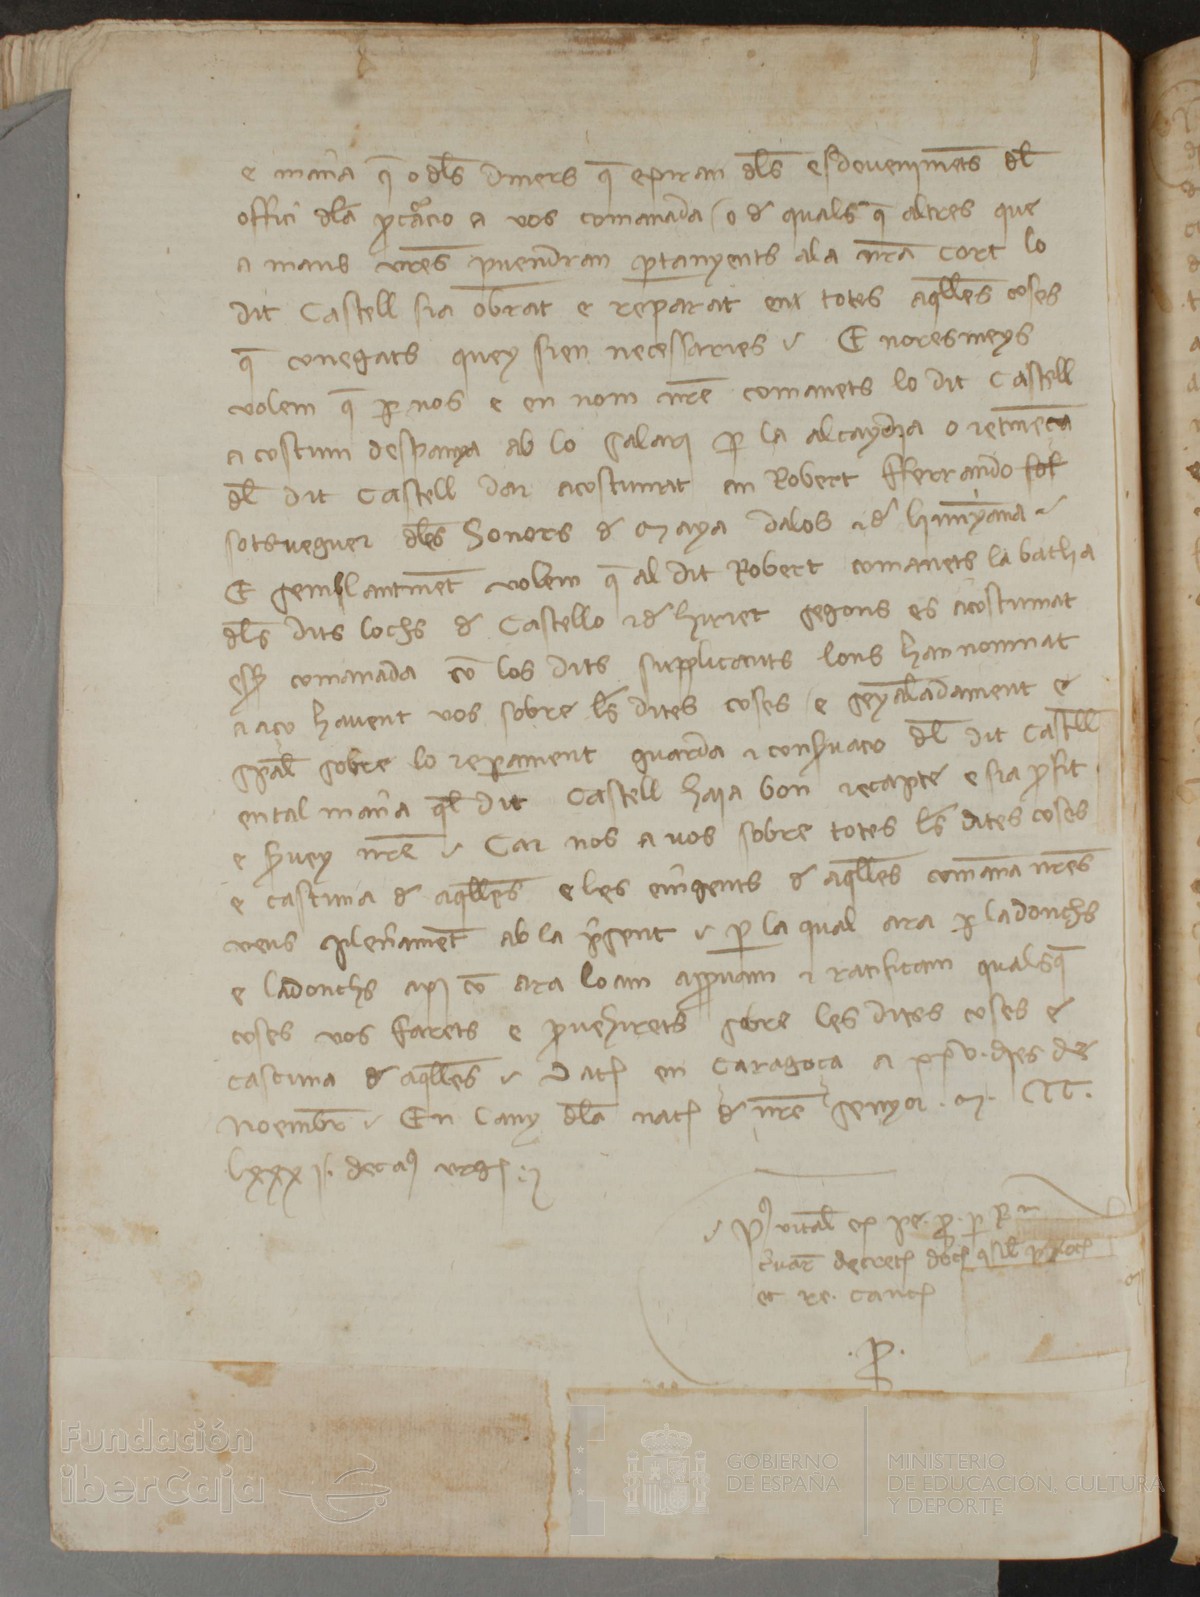 e man̄a q̄ o dl̄s diners q̄ exiran dl̄s esdeveniments dl̄
offici dl̄a p̄cācio a vos comanada / o d quals q̄ altres que
a mans vr̄es p̄vendran p̄tanyents ala nr̄a cort lo
dit Castell sia obrat e reparat en totes aq̄lles coses
q̄ conegats quey sien necessaries E noresmeys
volem q̄ p̄ nos e en nom nr̄e comanets lo dit Castell
a costum despanya ab lo salari p̄ la alcaydia o retinēca
dl̄ dit Castell dar acostumat an Robert fferrando
sotsveguer dl̄es honors d
E semblantmēt volem q̄ al dit Robert comanets la batlia
dl̄s dits lochs d Castello segons es acostumat
comanada cō los dits supplicants lons han nomnat
a aço havent vos sobre l̄s dites coses / e senyaladament e
sp̄al sobre lo reparament guarda conservacio dl̄ dit Castell
en tal man̄a ql̄ dit Castell haia bon recapte e sia p̄fit
e s̄vey nr̄e Car nos a vos sobre totes l̄s dites coses
e cascuna d aq̄lles e les em̄gents d aq̄lles comanam nr̄es
veus plen̄ament ab la p̄sent p̄ la qual ara p̄ ladonchs
e ladonchs axi cō ara loam app̄vam ratificam qualsq̄
coses vos farets e p̄vehirets sobre les dites coses e
cascuna d aq̄lles Dat en Caragoça a xxv. dies de
Noembr̄ En lany dl̄a nat d nr̄e senyor .M. CCC.
lxxx
vital
decret
et re. canc
.P.
Fundación
iberCaja
GOBIERNO
DE ESPAÑA
MINISTERIO
DE EDUCACIÓN, CULTURA
Y DEPORTE